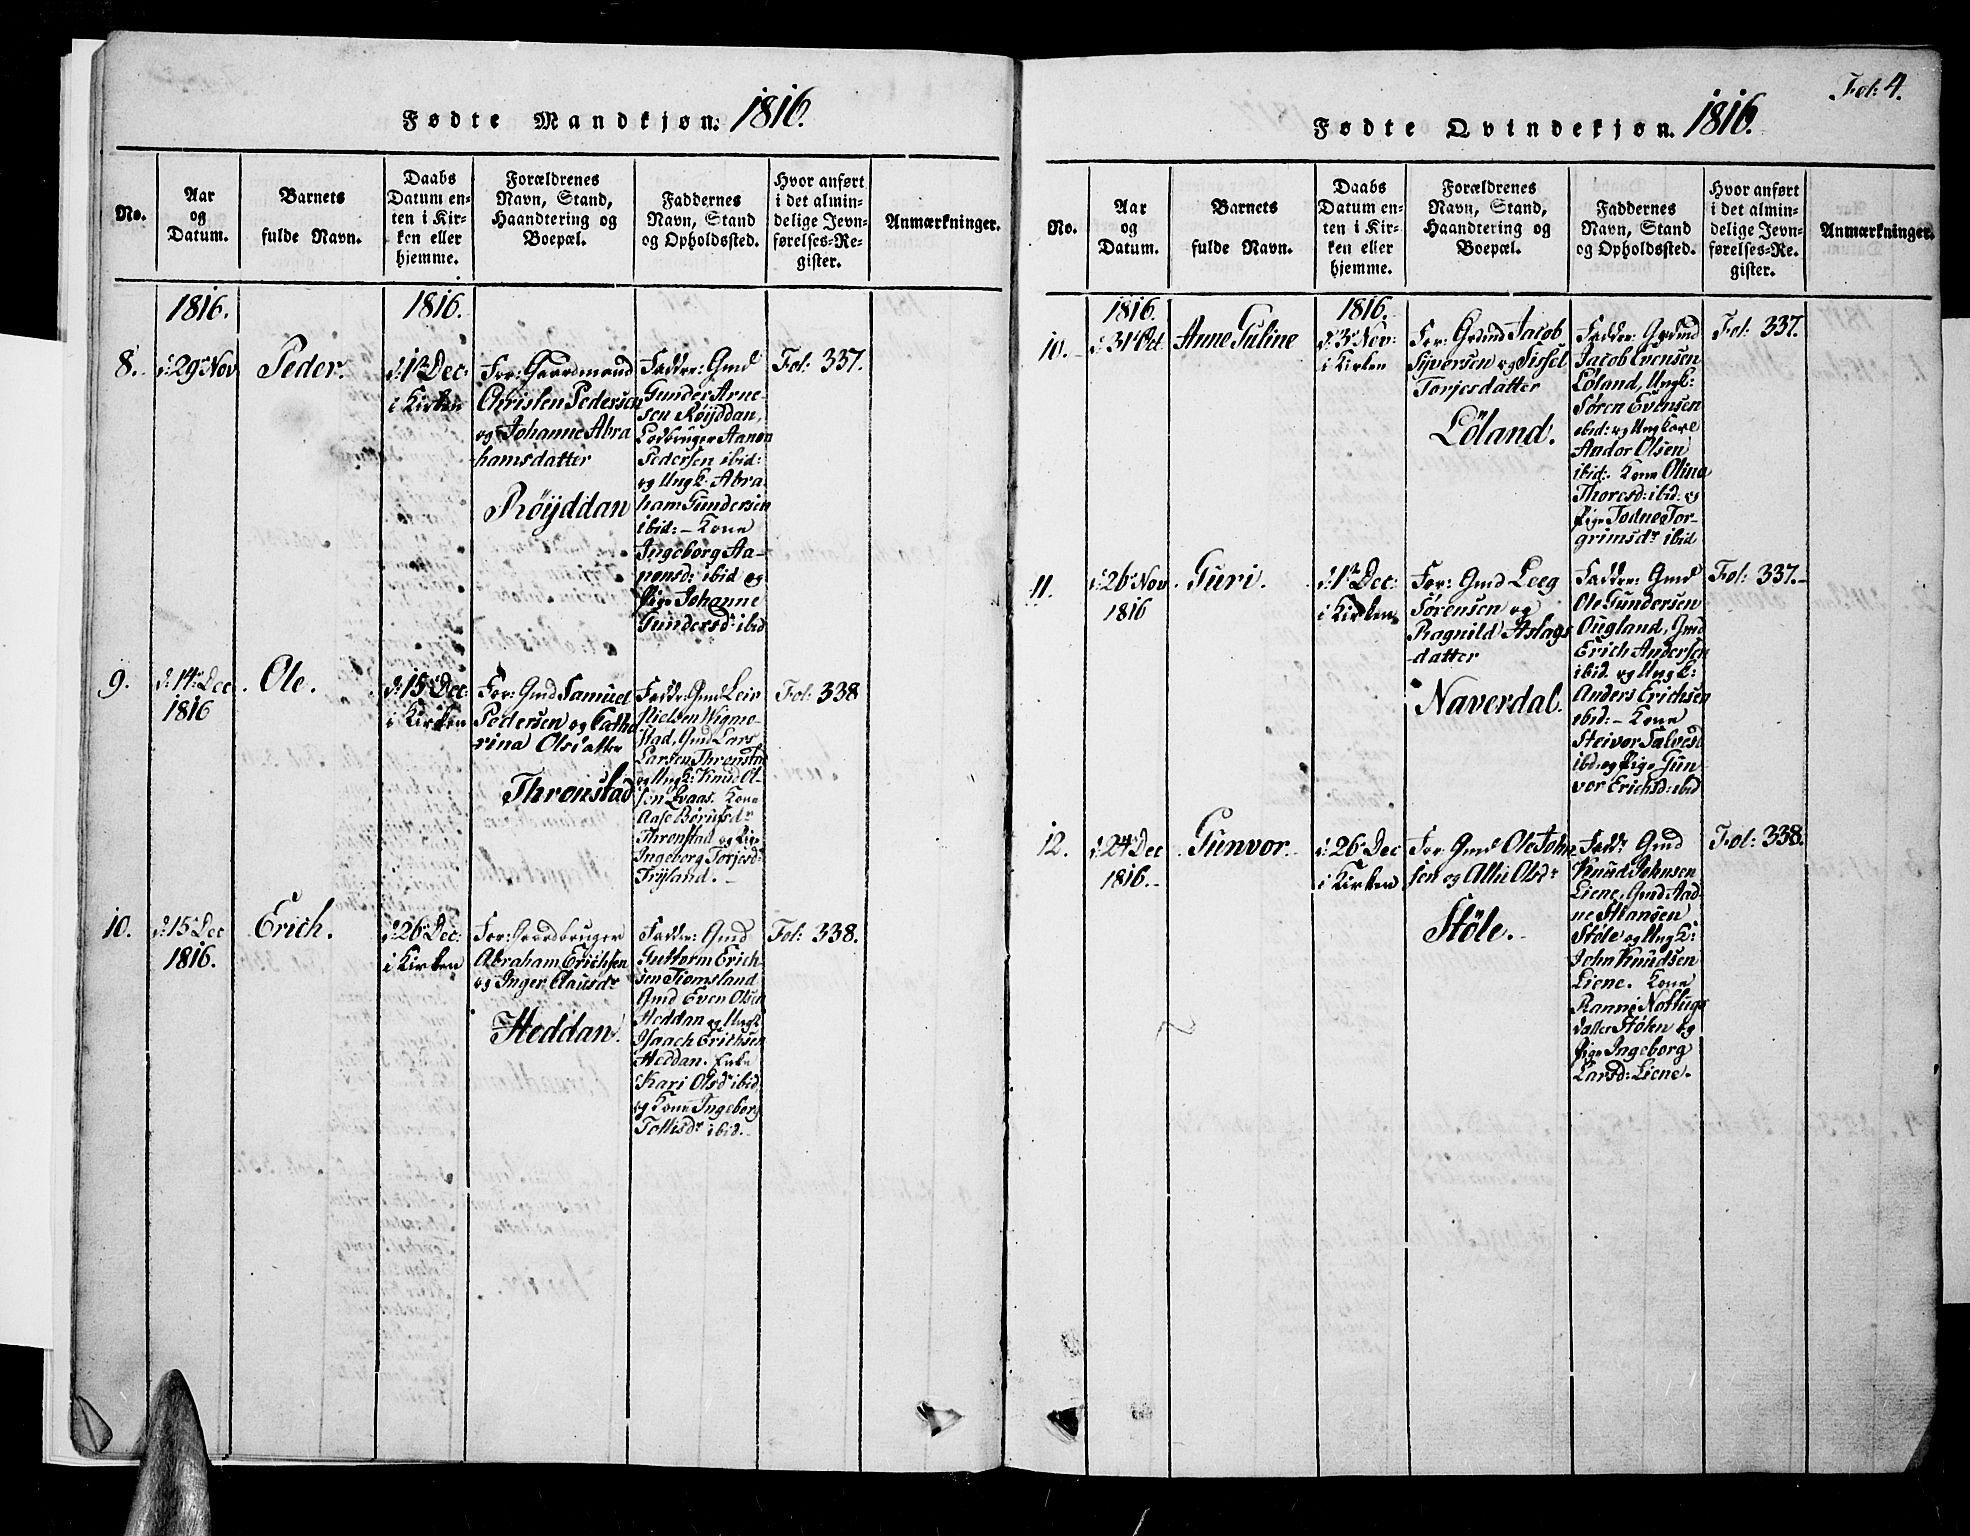 Fødte Mandkjøn. 1816.
No.
Aar
og
Datum.
Barnets
fulde Navn.
Daabs
Datum en-
ten i Kir-
ken eller
hjemme.
Forældrenes
Navn, Stand,
Haandtering og
Boepæl.
Faddernes
Navn, Stand
og Opholdssted.
Hvor anført
i det almin-
delige Jevn-
førelses-Re-
gister.
Anmærkninger.
1816.
1816.
8.
d: 29 Nov
Peder.
d: 1ste Dec:
i Kirken
For: Gaardmand
Christen Pedersen
og Johanne Abra
hamsdatter
Röyddan
Faddr: Gmd
Gunder Arne-
sen Röyddan,
Ledbruger Aanen
Pedersen ibid:
og Ungk: Abra
ham Gundersen
ibid: – Kone
Ingeborg Aa-
nensd: ibid og
Pige Johanne
Gundersd: ibid
Fol: 337.
9.
d: 14 Dec
1816
Ole.
d: 15 Dec
i Kirken
For: Gmd Samuel
Pedersen og Catha
rina Olsdatter
Thronstad
Faddr: Gmd Leir
Nielsen Wigme-
stad, Gmd Lars
Larsen Thronstad
og Ungk: Knud Ol-
sen Qvaas. Kone
Aase Börusdr
Thronstad og Pige
Ingeborg Torjesd:
Tryland. –
Fol: 338
10.
d: 15 Dec
1816.
Erich.
d: 26 Dec:
i Kirken
For: Gaardbruger
Abraham Erichsen
og Inger Clausdr
Heddan.
Faddr: Gmd
Guttorm Erich-
sen Tiomsland
Gmd Even Olsen
Heddan og Ungk
Isaach Erichsen
Heddan. Enke
Kari Olsdr ibid
og Kone Ingeborg
Tollisdr ibid. –
Fol: 338.
Fol: 4.
Fødte Qvindekjøn. 1816.
No.
Aar
og
Datum.
Barnets
fulde Navn.
Daabs
Datum en-
ten i Kir-
ken eller
hjemme.
Forældrenes
Navn, Stand,
Haandtering og
Boepæl.
Faddernes
Navn, Stand
og Opholdssted.
Hvor anført
i det almin-
delige Jevn-
førelses-Re-
gister.
Anmærkninger.
1816.
1816.
10.
d: 31 Oct
Anne Guline
d: 3 Nov:
i Kirken
For: Grdmd Jacob
Syversen og Sissel
Torjesdatter
Löland.
Fadder: Grdmd
Jacob Evensen
Löland, Ungk:
Sören Evensen
ibid: og Ungkarl
Andor Olsen
ibid: Kone Olina
Thoresd: ibid: og
Pige Todne Tor-
grimsdr ibid
Fol: 337.
11.
d: 26 Nov
1816
Guri.
d: 1ste Dec:
i Kirken
For: Gmd Leeg
Sörensen og
Ragnild Aslags
datter
Naverdal.
Faddr: Gmd
Ole Gundersen
Ougland, Gmd
Erich Andersen
ibid. og Ungk:
Anders Erichsen
ibid: – Kone
Steivor Salvesd
ibid. og Pige Gun
vor Erichsd: ibid
Fol: 337. –
12.
d: 24 Dec
1816. –
Gunvor.
d: 26 Dec
i Kirken
For: Gmd Ole John
sen og Allie Olsdr
Stöle. –
Faddr: Gmd
Knud Johnsen
Liene, Gmd Aad-
ne Stiansen
Stöle og Ungk:
John Knudsen
Liene. Kone
Ranni Notlugs
datter Stölen og
Pige Ingeborg
Larsd: Liene.
Fol: 338.